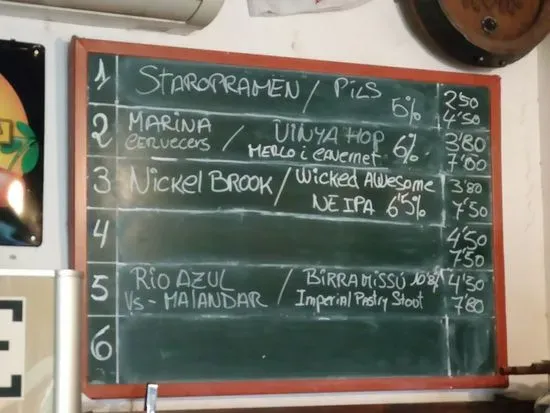 1 STAROPRAMEN / PILS 5% 2'50
4'50
2 MARINA / VINYA HOP 6% 3'80
CERVECERS MERLO i CAVERNET 7'00
3 NICKEL BROOK / WICKED AWESOME 3'80
NEIPA 6'5% 7'50
4 4'50
7'50
5 RIO AZUL / BIRRAMISSÚ 10'8% 4'50
VS - MALANDAR Imperial Pastry Stout 7'80
6
E